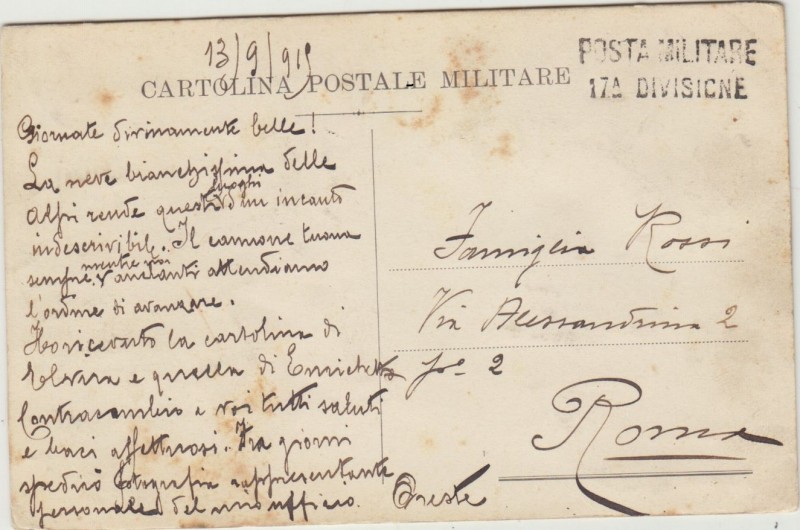 13/9/915
CARTOLINA POSTALE MILITARE
POSTA MILITARE
17A DIVISIONE
Giornate divinamente belle!
La neve bianchissima delle
Alpi rende questi luoghi d'un incanto
indescrivibile. Il cannone tuona
sempre mentre noi anelanti attendiamo
l'ordine di avanzare.
Ho ricevuto la cartolina di
Elvira e quella di Enrichetta
Contracambio a voi tutti saluti
e baci affettuosi. Fra giorni
spedirò fotografia rappresentante
personale del mio ufficio. Oreste
Famiglia Rossi
Via Alessandrina 2
p° 2
Roma